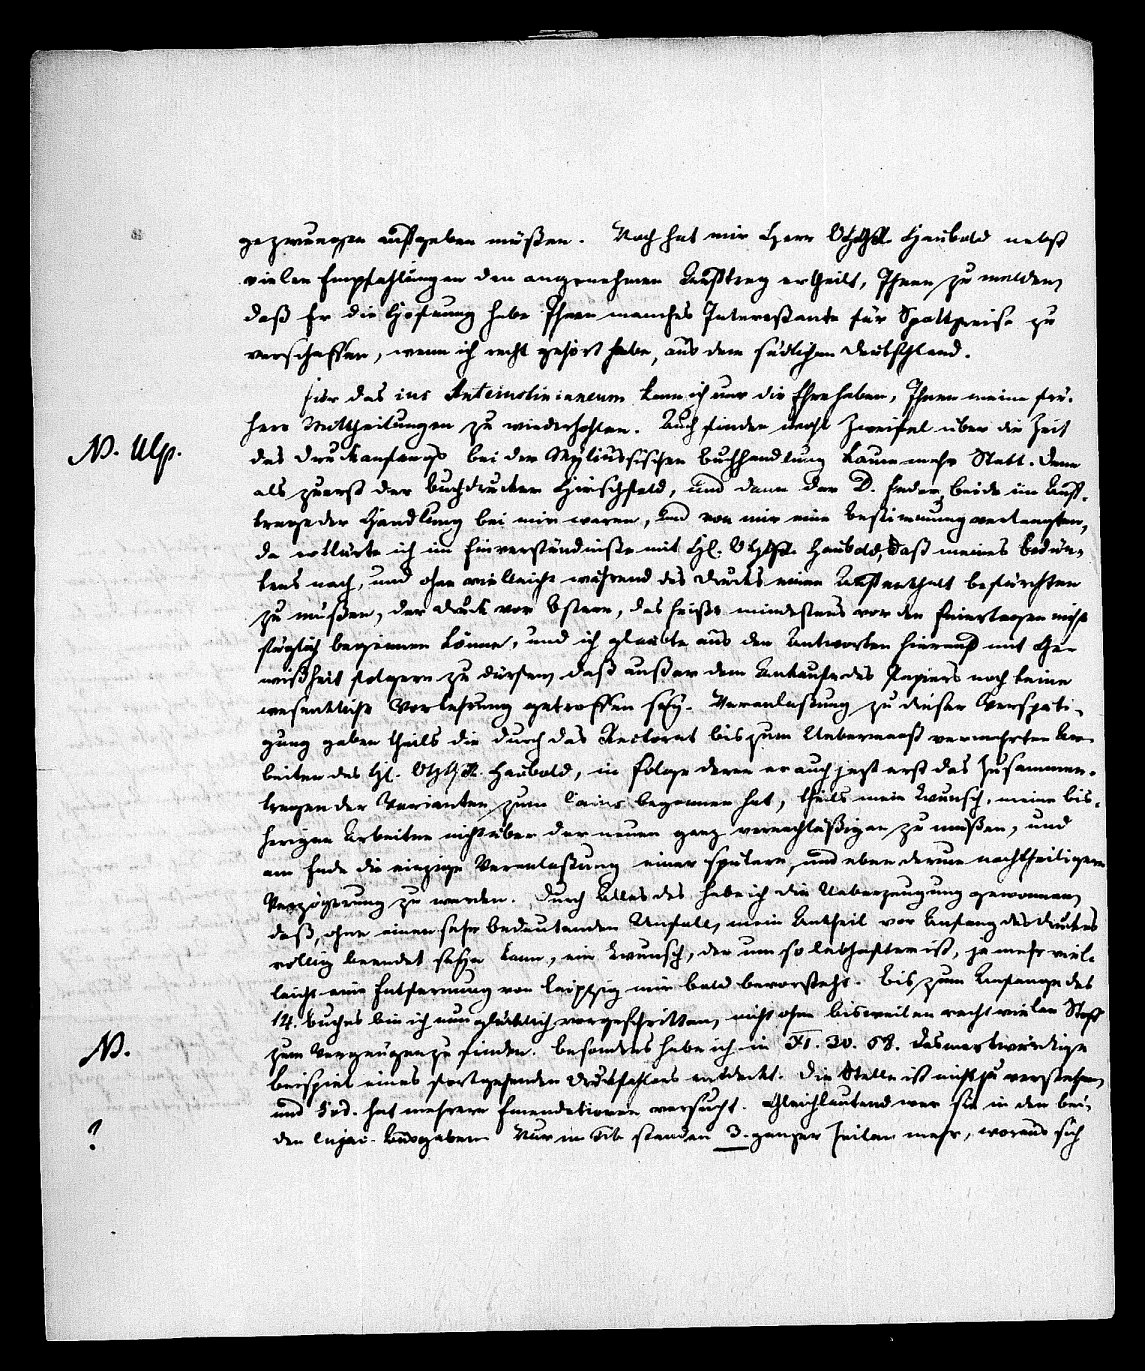 gezwungen aufgeben müßen. Noch hat mir Herr OHGR. Haubold nebst
vielen Empfehlungen den angenehmen Auftrag ertheilt, Ihnen zu melden,
daß Er die Hofnung habe Ihnen manches Interessante für Spottpreise zu
verschaffen, wenn ich recht gehört habe, aus dem südlichen Deutschland.
Für das ius Anteiustinianeum kann ich nur die Ehre haben, Ihnen meine frü-
N. Ulp.
here Mittheilungen zu wiederhohlen. Auch finden wohl Zweifel über die Zeit
des Druckanfangs bei der Myliussischen Buchhandlung kaum mehr Statt. Denn
als zuerst der Buchdrucker Hirschfeld, und dann der D. beide im Auf-
trage der Handlung bei mir waren, und von mir eine Bestimmung verlangten,
da erklärte ich im Einverständniße mit H. OHGR. Haubold, daß meines Bedün-
kens nach, und ohne vielleicht während des Drucks einen Aufenthalt befürchten
zu müßen, der Druck vor Ostern, das heißt mindestens vor den Feiertagen nicht
füglich beginnen könne, und ich glaubte aus den Antworten hierauf mit Ge-
wißheit folgern zu dürfen, daß außer dem Ankaufe des Papiers noch keine
wesentliche Vorkehrung getroffen sey. Veranlaßung zu dieser Verspäti-
gung gaben theils die durch das Rectorat bis zum Uebermaaß vermehrten Ar-
beiten des H. OHGR. Haubold, in Folge deren er auch jetzt erst das Zusammen-
tragen der Varianten zum Caius begonnen hat, theils mein Wunsch, meine bis-
herigen Arbeiten nicht über der neuen ganz vernachläßigen zu müßen, und
am Ende die einzige Veranlaßung einer spätern, und eben darum nachtheiligern
Verzögerung zu werden. Durch Alles das habe ich die Ueberzeugung gewonnen,
daß, ohne einen sehr bedeutenden Unfall, mein Antheil vor Anfang des Druckes
völlig beendet seyn kann, ein Wunsch, der um so lebhafter ist, je mehr viel-
leicht eine Entfernung von Leipzig mir bald bevorsteht. Bis zum Anfange des
14. Buches bin ich nun glücklich vorgeschritten, nicht ohne bisweilen recht vielen Stoff
N.
zum Vergnügen zu finden. Besonders habe ich in XI. 30. 58. das merkwürdige
Beispiel eines fortgehenden Druckfehlers entdeckt. Die Stelle ist nicht zu verstehen,
und God. hat mehrere Emendationen versucht. Gleichlautend war sie in den bei-
?
den Cujac. Ausgaben. Nur in Sib. standen 3. ganzer Zeilen mehr, woraus sich